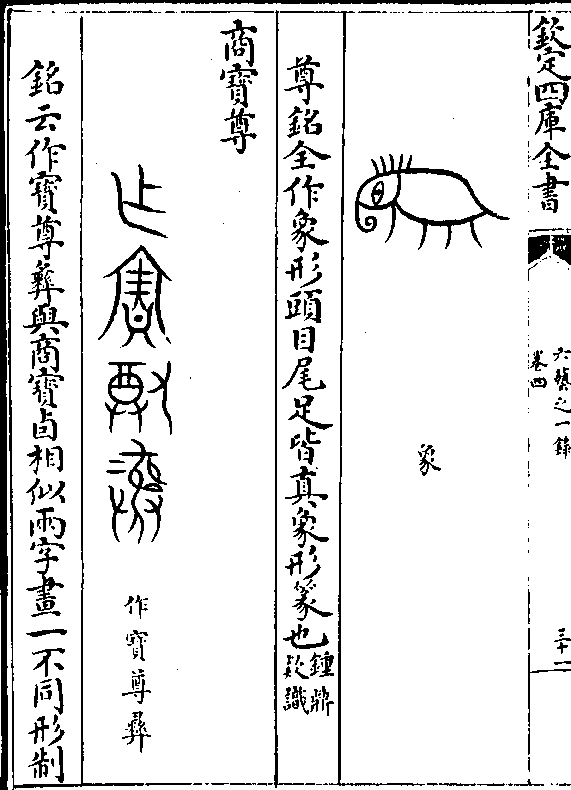 欽定四庫全書
六藝之一錄
卷四
三十一
象
尊銘全作象形頭目尾足皆真象形篆也鍾鼎欵識
商寶尊
作寶尊彝
銘云作寶尊彝與商寶卣相似兩字畫一不同形制